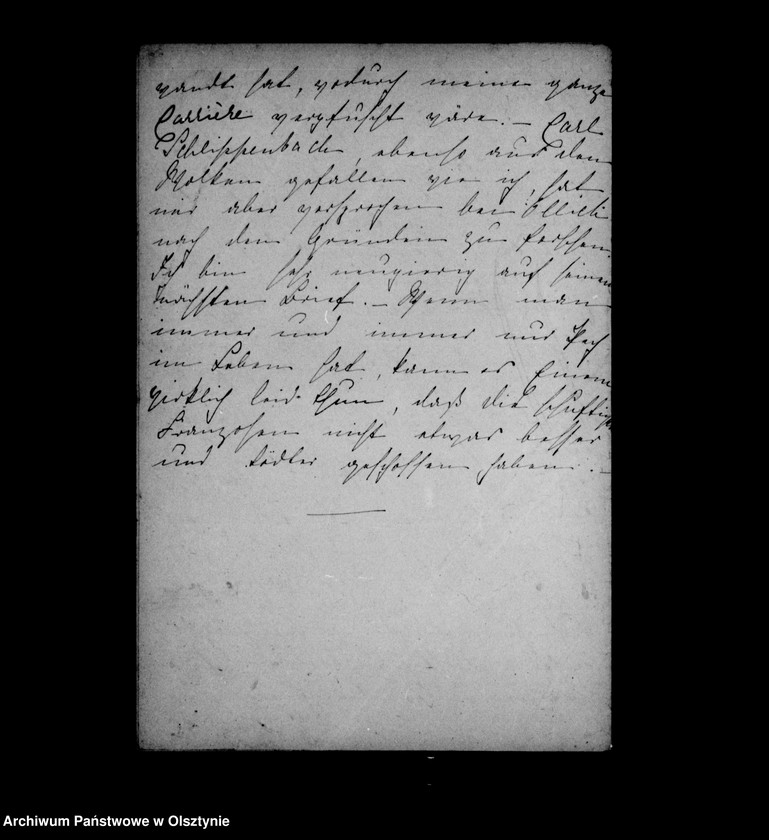 wandt hat, wodurch meine ganze
Carrière verpfuscht wäre. – Carl
Schlippenbach, ebenso aus den
Wolken gefallen wie ich, hat
mir aber versprochen bei
nach den Gründen zu forschen.
Ich bin sehr neugierig auf seinen
nächsten Brief. – Wenn man
immer und immer nur Pech
im Leben hat, kann es Einem
wirklich leid thun, daß die schuftigen
Franzosen nicht etwas besser
und geschossen haben. –
Archiwum Państwowe w Olsztynie